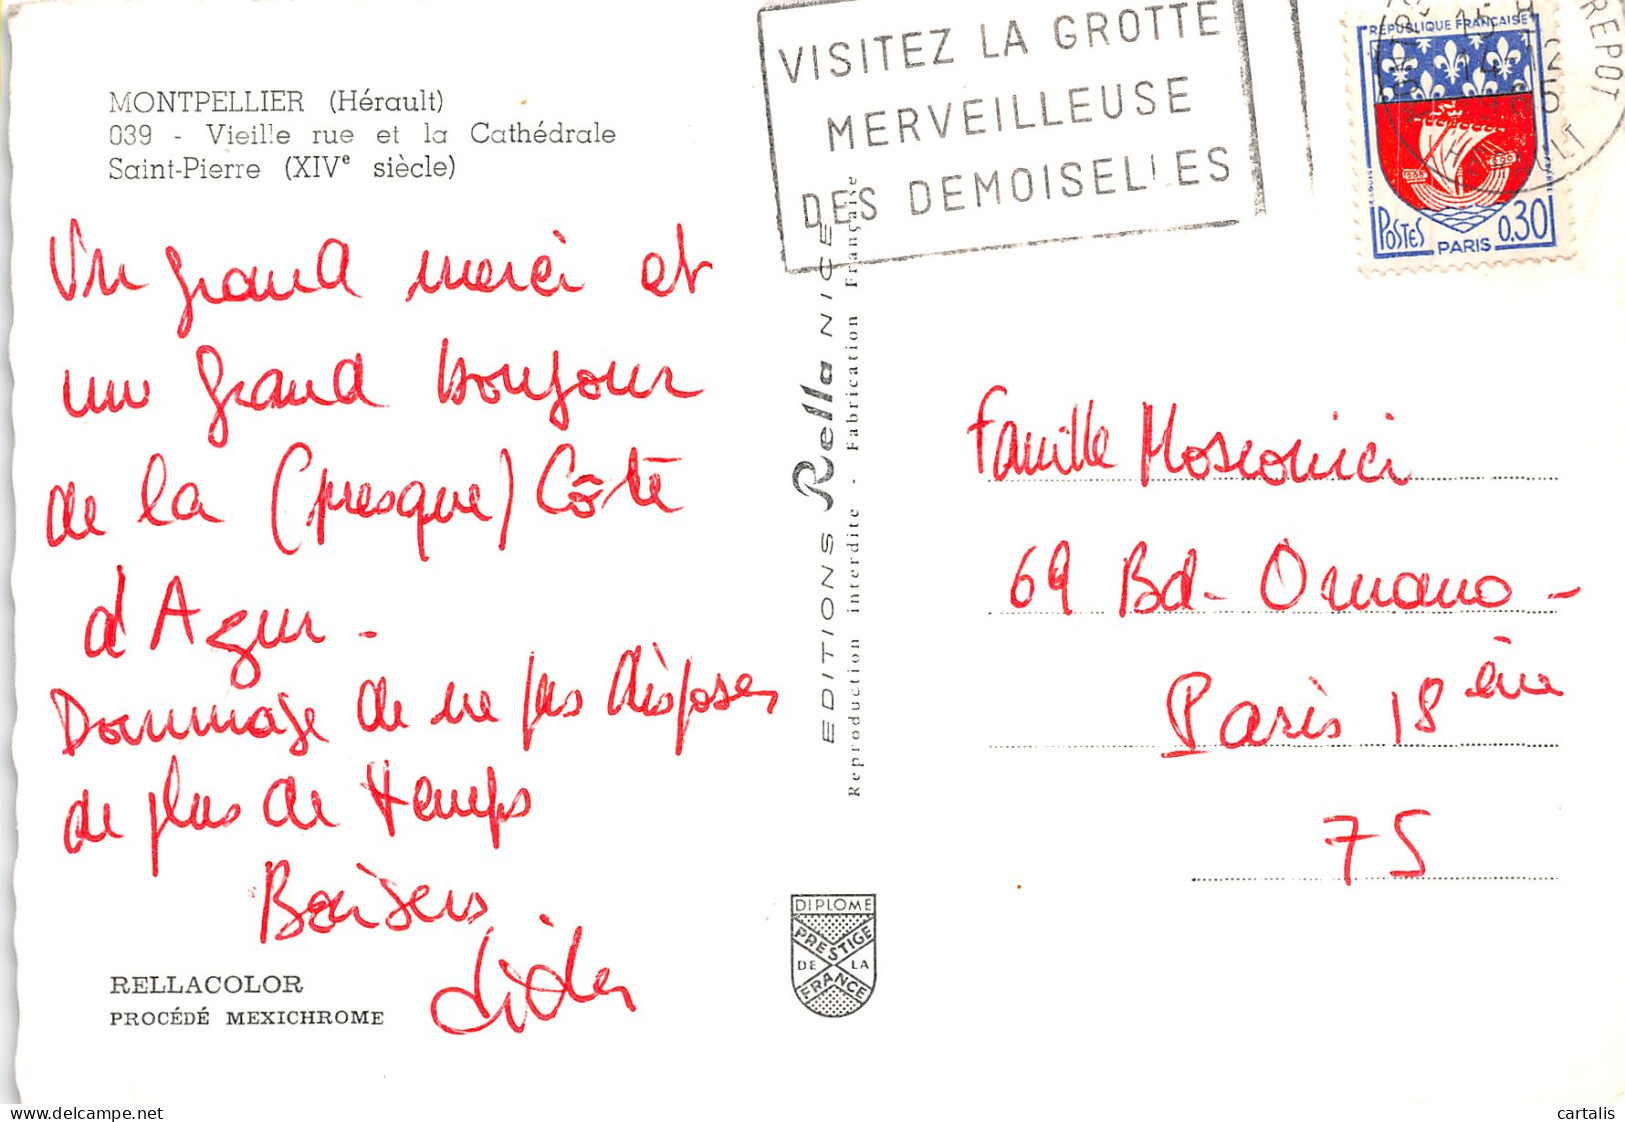 MONTPELLIER (Hérault)
039 - Vieille rue et la Cathédrale
Saint-Pierre (XIVe siècle)
Un grand merci et
un grand bonjour
de la (presque) Côte
d'Azur.
Dommage de ne pas disposer
de plus de temps
Baisers
RELLACOLOR
PROCÉDÉ MEXICHROME
EDITIONS Rella NICE
Reproduction interdite - Fabrication Française
DIPLOME
PRESTIGE
DE LA
FRANCE
VISITEZ LA GROTTE
MERVEILLEUSE
DES DEMOISELLES
REPUBLIQUE FRANÇAISE
POSTES
0,30
PARIS
15 H
HERAULT
Famille Moscovici
69 Bd. Ornano -
Paris 18 ème
75
delcampe.net
cartalis